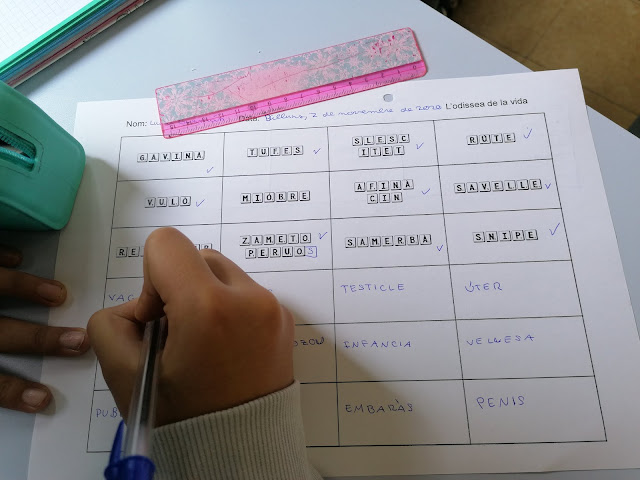 Nom: Data: Dilluns, 2 de novembre de 2020 L'odissea de la vida
GAVINA TUFES SLESC
ITET RÚTE
VULO MIOBRE AFINA
CIN SAVELLE
ZAMETO
PERUOS SAMERBA SNIPE
TESTICLE ÚTER
ENFANCIA VELLESA
EMBARÀS PENIS